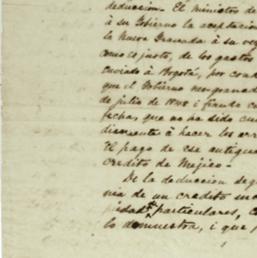 deduccion. El ministros de
à su Gobierno la aceptacion
la Nueva Granada à su ve
como es justo, de los gastos
enviado à Bogotá, por con
que el Gobierno neogranad
de julio de 1848 i fiando c
fechas, que no ha sido cum
diamente à hacer los arr
El pago de ese antiguo
credito de Mejico.-
De la deduccion seg
nia de un credito
piedad particulares, C
lo demuestra, i que p